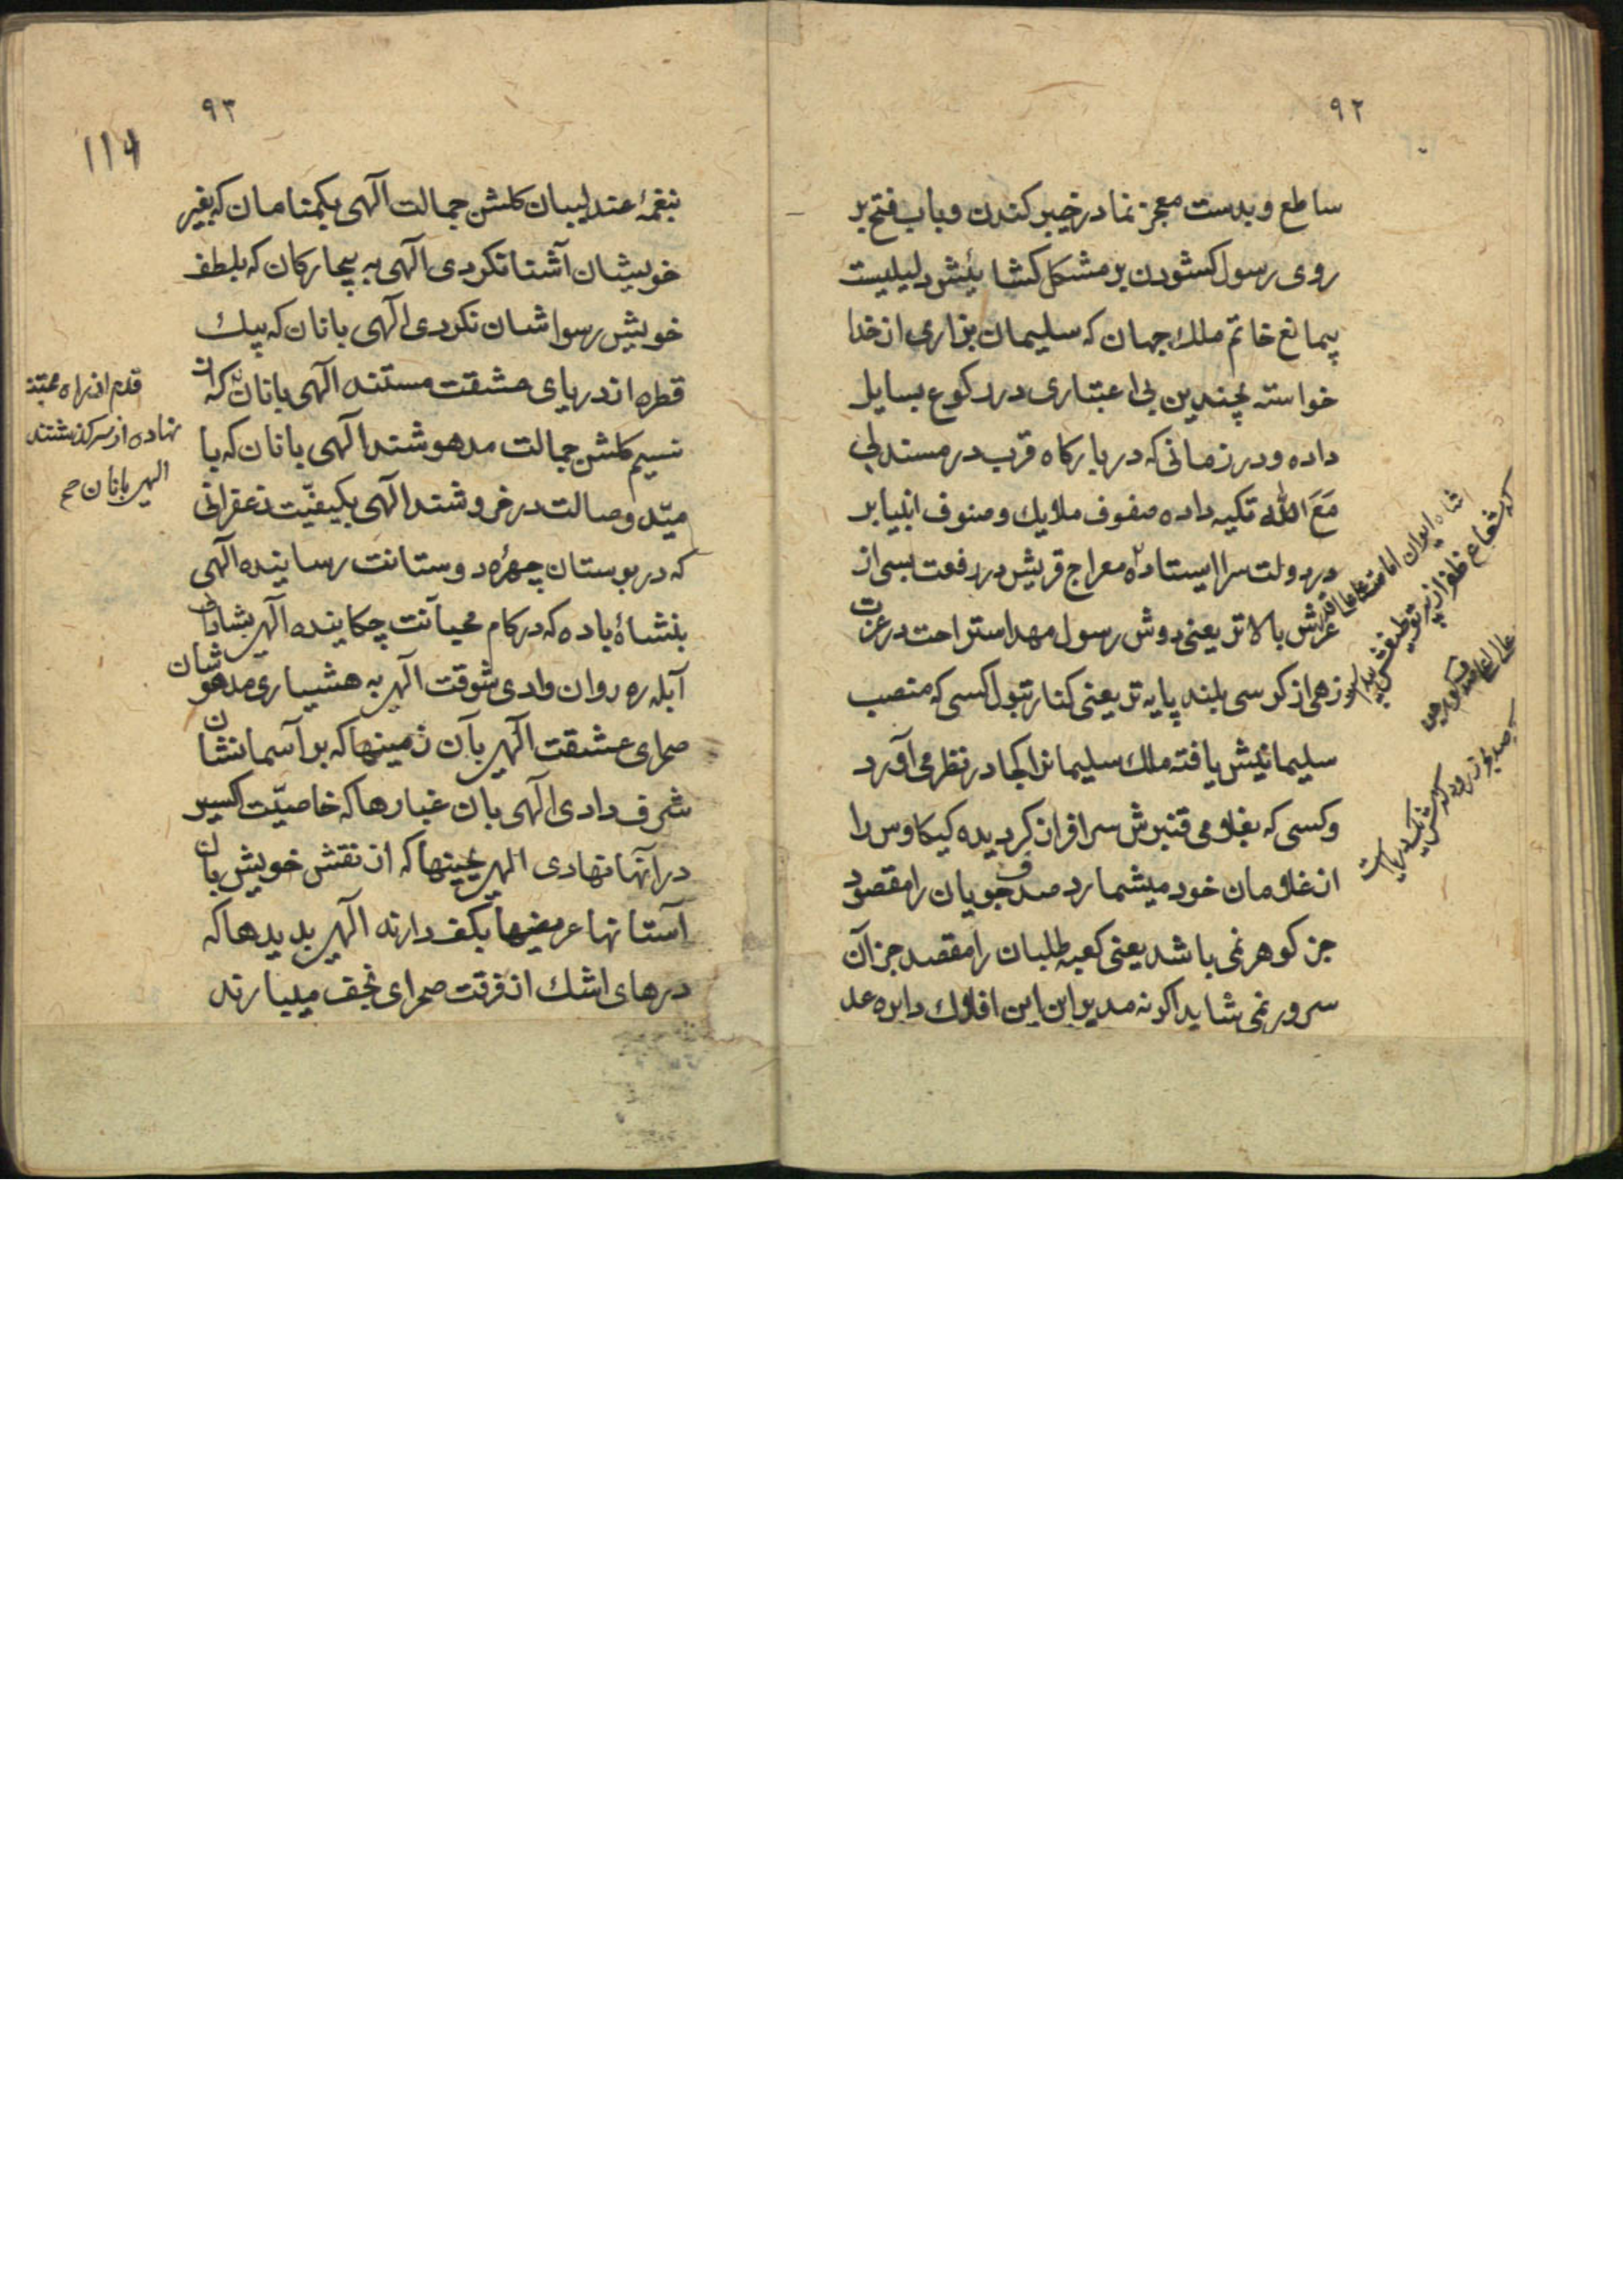 ۹۲
ساطع و بدست معجز نما در خیبر کندن و باب فتح بر
روی رسول کشودن بر مشکل کشائیش دلیلیست
خاتم ملك جهان که سلیمان بزاری از خدا
خواسته بچندین بی اعتباری در رکوع بسایل
داده و در زمانی که در بارکاه قرب در مسند لی
مَعَ الله تکیه داده صفوف ملایك و صنوف انبیا بر
در دولت سرا ایستاده معراج قریش در رفعت بسی از
عرش بالاتر یعنی دوش رسول مهد استراحت در عزت
زهی از کرسی بلند پایه تر یعنی کنار بتول کسی که منصب
سلیمانیش یافته ملك سلیمانرا کجا در نظر می آورد
و کسی که بغلامی قنبرش سرافراز کردیده کیکاوس را
از غلامان خود میشمارد صدف جویان را مقصود
جز کوهر نمی باشد یعنی کعبه طلبان را مقصد جز آن
سرور نمی شاید اکر نه مدیر این افلاك دایره عد
شاه ایوان امامت
کز شعاع
۹۳
۱۱۶
بنغمهٔ عندلیبان کلشن جمالت آلهی بکمنامان که بغیر
خویشان آشنا نکردی آلهی به بیچارکان که بلطف
خویش رسواشان نکردی آلهی بانان که بیك
قطره از دریای عشقت مستند آلهی بانان که از
نسیم کلشن جمالت مدهوشند آلهی بانان که با
میّد وصالت در خروشند آلهی بکیفیّت زعفرانی
که در بوستان چهرهٔ دوستانت رسانیده آلهی
بنشاهٔ باده که در کام محبانت چکانیده آلهی بشادا
آبله ره روان وادی شوقت آلهی به هشیاری مدهوشان
صحرای عشقت آلهی بآن زمینها که بر آسمانشان
شرف دادی آلهی بان غبارها که خاصیّت اکسیر
در آنها نهادی الهی بجبینها که از نقش خویش بان
آستانها عریضها بکف دارند آلهی بدیدها که
درهای اشك از فرقت صحرای نجف میبارند
قدم در راه محبتت
نهاده از سر کذشتند
الهی بانان صح